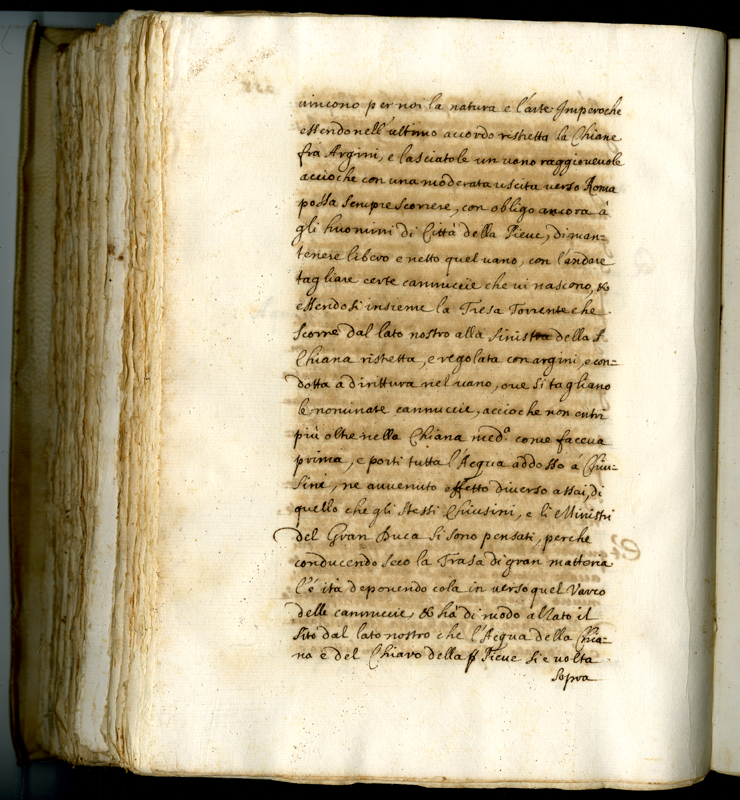 uincono per noi la natura e l'arte Imperoche
essendo nell'ultimo accordo ristretta la Chiane
fra Argini, e lasciatole un uano raggioneuole
accioche con una moderata uscita uerso Roma
possa sempre scorrere, con obligo ancora à
gli huomini di Città della Pieue, di man=
tenere libero e netto quel uano, con l'andare
tagliare certe cannuccie che ui nascono, &
essendosi insieme la Tresa Torrente che
scorre dal lato nostro alla sinistra della
Chiana ristretta, e regolata con argini, e con=
dotta a dirittura nel uano, oue si tagliano
le nominate cannuccie, accioche non entri
più oltre nella Chiana med.ª come faceua
prima, e porti tutta l'Acqua addosso à Chiu=
sini, ne auuenuto effetto diuerso assai, di
quello che gli stessi Chiusini, e li Ministri
del Gran Duca si sono pensati, perche
conducendo seco la Trasa di gran matteria
l'è ità deponendo cola in uerso quel Varco
delle cannuccie, & hà di modo alzato il
sito dal lato nostro che l'Acqua della Chia=
na e del Chiaro della Pieue si e uolta
sopra